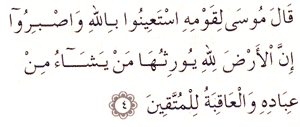 قَالَ مُوسَى لِقَوْمِهِ اسْتَعِينُوا بِاللهِ وَاصْبِرُوٓا
إِنَّ الْأَرْضَ لِلهِ يُورِثُهَا مَنْ يَشَآءُ مِنْ
عِبَادِهِ وَالْعَاقِبَةُ لِلْمُتَّقِينَ ٤